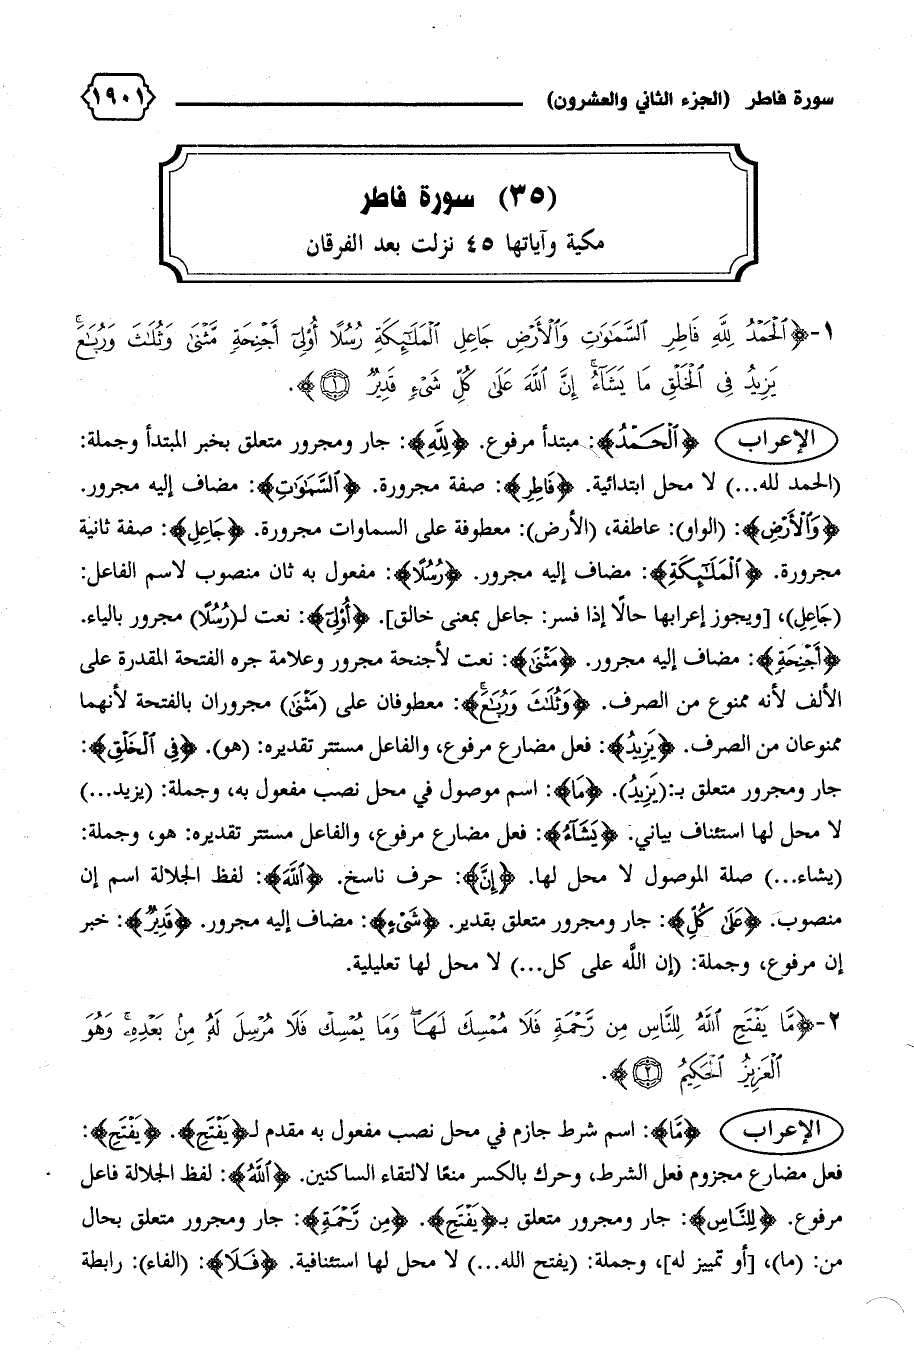 سورة فاطر (الجزء الثاني والعشرون) ١٩٠١
(٣٥) سورة فاطر
مكية وآياتها ٤٥ نزلت بعد الفرقان
١-﴿ٱلْحَمْدُ لِلَّهِ فَاطِرِ ٱلسَّمَٰوَٰتِ وَٱلْأَرْضِ جَاعِلِ ٱلْمَلَٰٓئِكَةِ رُسُلًا أُو۟لِىٓ أَجْنِحَةٍ مَّثْنَىٰ وَثُلَٰثَ وَرُبَٰعَ ۚ
يَزِيدُ فِى ٱلْخَلْقِ مَا يَشَآءُ ۚ إِنَّ ٱللَّهَ عَلَىٰ كُلِّ شَىْءٍ قَدِيرٌ ١﴾.
الإعراب ﴿ٱلْحَمْدُ﴾: مبتدأ مرفوع. ﴿لِلَّهِ﴾: جار ومجرور متعلق بخبر المبتدأ وجملة:
(الحمد لله...) لا محل ابتدائية. ﴿فَاطِرِ﴾: صفة مجرورة. ﴿ٱلسَّمَٰوَٰتِ﴾: مضاف إليه مجرور.
﴿وَٱلْأَرْضِ﴾: (الواو): عاطفة، (الأرض): معطوفة على السماوات مجرورة. ﴿جَاعِلِ﴾: صفة ثانية
مجرورة. ﴿ٱلْمَلَٰٓئِكَةِ﴾: مضاف إليه مجرور. ﴿رُسُلًا﴾: مفعول به ثان منصوب لاسم الفاعل:
(جَاعِلِ)، [ويجوز إعرابها حالًا إذا فسر: جاعل بمعنى خالق]. ﴿أُو۟لِىٓ﴾: نعت لـ(رُسُلًا) مجرور بالياء.
﴿أَجْنِحَةٍ﴾: مضاف إليه مجرور. ﴿مَثْنَىٰ﴾: نعت لأجنحة مجرور وعلامة جره الفتحة المقدرة على
الألف لأنه ممنوع من الصرف. ﴿وَثُلَٰثَ وَرُبَٰعَ ۚ﴾: معطوفان على (مَثْنَىٰ) مجروران بالفتحة لأنهما
ممنوعان من الصرف. ﴿يَزِيدُ﴾: فعل مضارع مرفوع، والفاعل مستتر تقديره: (هو). ﴿فِى ٱلْخَلْقِ﴾:
جار ومجرور متعلق بـ:(يَزِيدُ). ﴿مَا﴾: اسم موصول في محل نصب مفعول به، وجملة: (يزيد...)
لا محل لها استئناف بياني. ﴿يَشَآءُ﴾: فعل مضارع مرفوع، والفاعل مستتر تقديره: هو، وجملة:
(يشاء...) صلة الموصول لا محل لها. ﴿إِنَّ﴾: حرف ناسخ. ﴿ٱللَّهَ﴾: لفظ الجلالة اسم إن
منصوب. ﴿عَلَىٰ كُلِّ﴾: جار ومجرور متعلق بقدير. ﴿شَىْءٍ﴾: مضاف إليه مجرور. ﴿قَدِيرٌ﴾: خبر
إن مرفوع، وجملة: (إن اللَّه على كل...) لا محل لها تعليلية.
٢-﴿مَّا يَفْتَحِ ٱللَّهُ لِلنَّاسِ مِن رَّحْمَةٍ فَلَا مُمْسِكَ لَهَا ۖ وَمَا يُمْسِكْ فَلَا مُرْسِلَ لَهُۥ مِنۢ بَعْدِهِۦ ۚ وَهُوَ
ٱلْعَزِيزُ ٱلْحَكِيمُ ٢﴾.
الإعراب ﴿مَّا﴾: اسم شرط جازم في محل نصب مفعول به مقدم لـ﴿يَفْتَحِ﴾. ﴿يَفْتَحِ﴾:
فعل مضارع مجزوم فعل الشرط، وحرك بالكسر منعًا لالتقاء الساكنين. ﴿ٱللَّهُ﴾: لفظ الجلالة فاعل
مرفوع. ﴿لِلنَّاسِ﴾: جار ومجرور متعلق بـ﴿يَفْتَحِ﴾. ﴿مِن رَّحْمَةٍ﴾: جار ومجرور متعلق بحال
من: (ما)، [أو تمييز له]، وجملة: (يفتح الله...) لا محل لها استئنافية. ﴿فَلَا﴾: (الفاء): رابطة